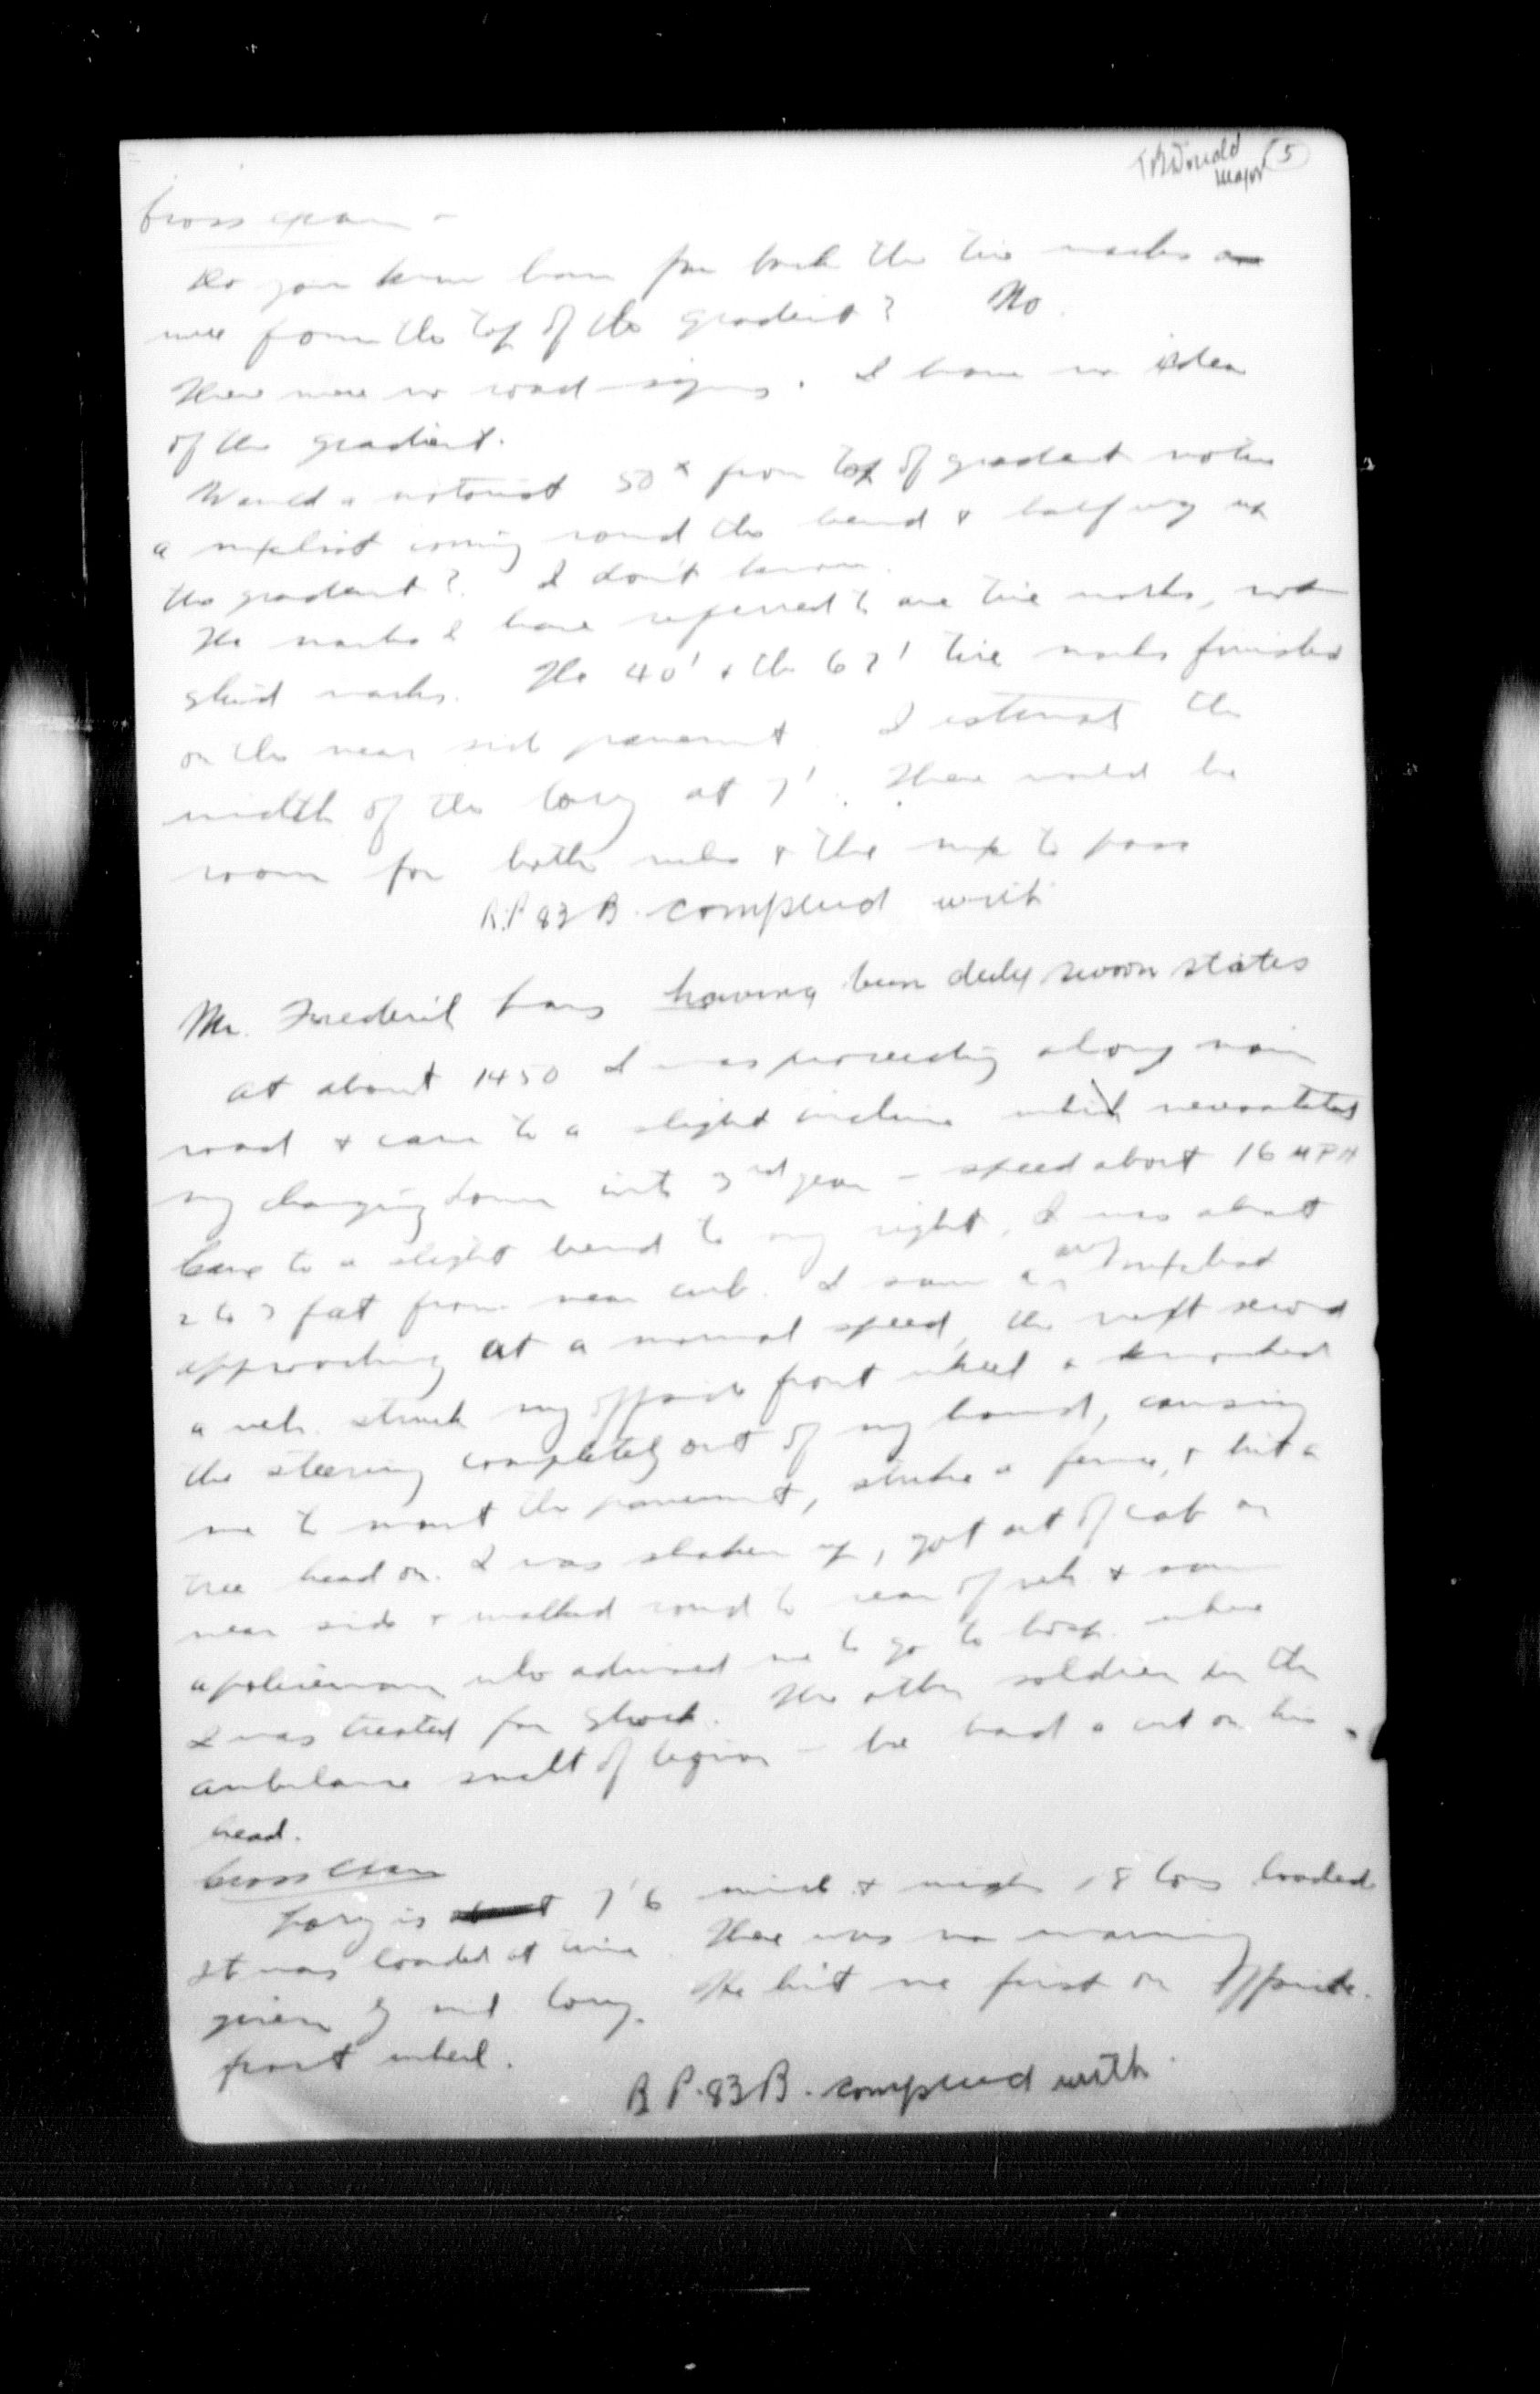 TMDonald 5
Major
Cross exam -
Do you know how far back the tire marks
were from the top of the gradient? No.
There were no road signs. I have no idea
of the gradient.
Would a motorist 50x from top of gradient notice
a cyclist coming round the bend & half way up
the gradient? I don't know.
The marks I have referred to are tire marks, not
skid marks. The 40' & the 67' tire marks finished
on the near side pavement. I estimate the
width of the lorry at 7'. There would be
room for both vehs & the to pass
R.P. 83 B. complied with
Mr. Frederick having been duly sworn states
At about 1450 I was proceeding along main
road & came to a slight incline which necessitated
my changing down into 3rd gear - speed about 16 MPH
Came to a slight bend to my right. I was about
2 to 3 feet from near curb. I saw army cyclist
approaching at a normal speed, the next second
a veh. struck my offside front wheel & knocked
the steering completely out of my hand, causing
me to mount the pavement, strike a fence, & hit a
tree head on. I was shaken up, got out of cab on
near side & walked round to rear of veh & saw
a policeman who advised me to go to hosp. where
I was treated for shock. The other soldier in the
ambulance smelt of liquor - he had a cut on his
head.
Cross Exam
Lorry is 7'6 wide & weighs 18 tons loaded
It was loaded at time. There was no warning
given by mil lorry. He hit me first on offside
front wheel.
R.P. 83 B. complied with